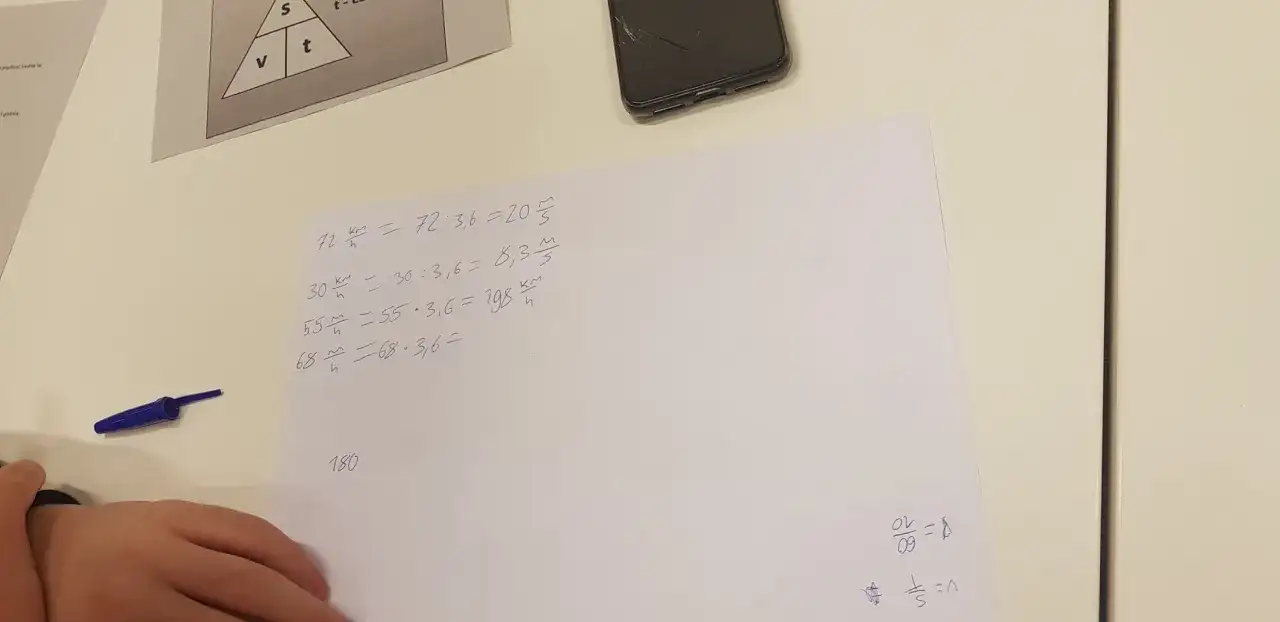 s
v t
72 km/h = 72 : 3,6 = 20 m/s
30 km/h = 30 : 3,6 = 8,3 m/s
55 m/h = 55 · 3,6 = 198 km/h
68 m/h = 68 · 3,6 =
180
v = s/t
= 60/10